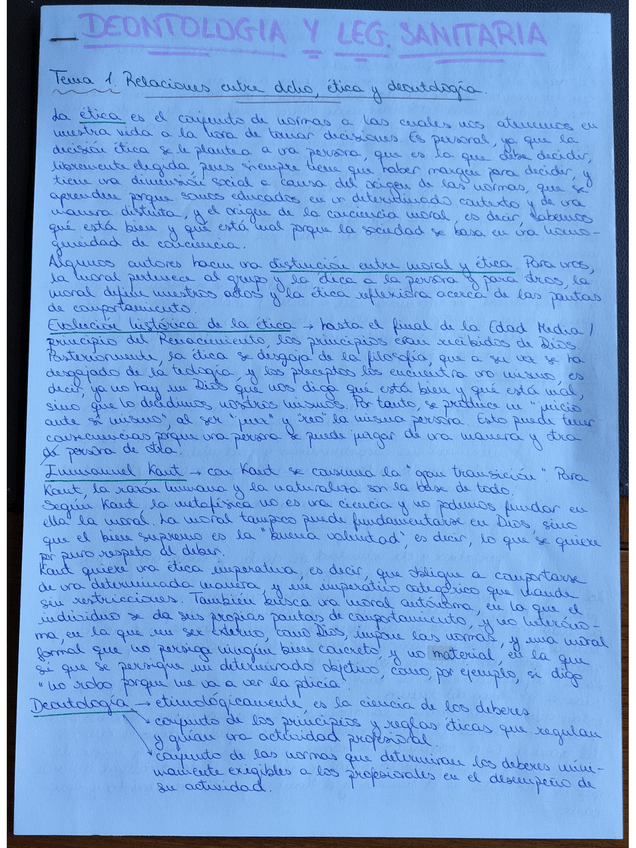 DEONTOLOGIA Y LEG. SANITARIA
Tema 1. Relaciones entre dcho, ética y deontología.
La ética es el conjunto de normas a las cuales nos atenemos en
nuestra vida a la hora de tomar decisiones. Es personal, ya que la
decisión ética se le plantea a una persona, que es la que debe decidir,
libremente elegida, pues siempre tiene que haber margen para decidir, y
tiene una dimensión social a causa del origen de las normas, que se
aprenden porque somos educados en un determinado contexto y de una
manera distinta, y el origen de la conciencia moral, es decir, sabemos
qué está bien y qué está mal porque la sociedad se basa en una homo-
geneidad de conciencia.
Algunos autores hacen una distinción entre moral y ética. Para unos,
la moral pertenece al grupo y la ética a la persona y para otros, la
moral define nuestros actos y la ética reflexiona acerca de las pautas
de comportamiento.
Evolución histórica de la ética → hasta el final de la Edad Media /
principio del Renacimiento, los principios eran recibidos de Dios.
Posteriormente, la ética se desgaja de la filosofía, que a su vez se ha
desgajado de la teología, y los preceptos los encuentra uno mismo, es
decir, ya no hay un Dios que nos diga qué está bien y qué está mal,
sino que lo decidimos nosotros mismos. Por tanto, se produce un "juicio
ante sí mismo", al ser "juez" y "reo" la misma persona. Esto puede tener
consecuencias porque una persona se puede juzgar de una manera y otra
persona de otra.
Immanuel Kant → con Kant se consuma la "gran transición". Para
Kant, la razón humana y la naturaleza son la base de todo.
Según Kant, la metafísica no es una ciencia y no podemos fundar en
ella la moral. La moral tampoco puede fundamentarse en Dios, sino
que el bien supremo es la "buena voluntad", es decir, lo que se quiere
por puro respeto al deber.
Kant quiere una ética imperativa, es decir, que obligue a comportarse
de una determinada manera, y un imperativo categórico que mande
sin restricciones. También busca una moral autónoma, en la que el
individuo se da sus propias pautas de comportamiento, y no heteróno-
ma, en la que un ser externo, como Dios, impone las normas, y una moral
formal que no persiga ningún bien concreto, y no material, en la que
sí que se persigue un determinado objetivo, como, por ejemplo, si digo
"no robo porque me va a ver la policía".
Deontología → etimológicamente, es la ciencia de los deberes.
conjunto de los principios y reglas éticas que regulan
y guían una actividad profesional.
conjunto de las normas que determinan los deberes míni-
mamente exigibles a los profesionales en el desempeño de
su actividad.